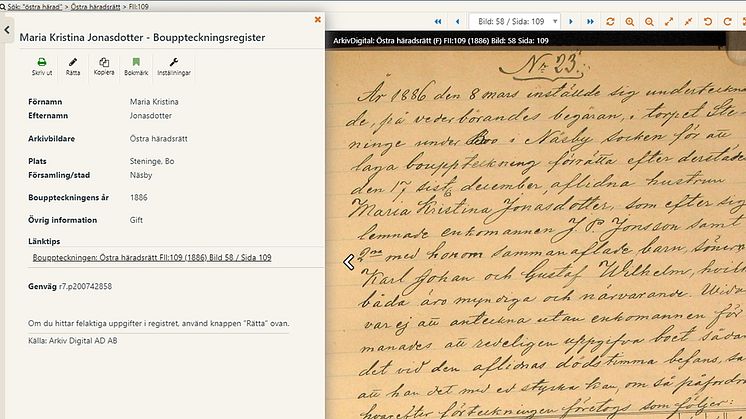 Sök: "östra härad" > Östra häradsrätt > FII:109
Maria Kristina Jonasdotter - Bouppteckningsregister
Skriv ut Rätta Kopiera Bokmärk Inställningar
Förnamn Maria Kristina
Efternamn Jonasdotter
Arkivbildare Östra häradsrätt
Plats Steninge, Bo
Församling/stad Näsby
Bouppteckningens år 1886
Övrig information Gift
Länktips
Bouppteckningen: Östra häradsrätt FII:109 (1886) Bild 58 / Sida 109
Genväg r7.p200742858
Om du hittar felaktiga uppgifter i registret, använd knappen "Rätta" ovan.
Källa: Arkiv Digital AD AB
Bild: 58 / Sida: 109
ArkivDigital: Östra häradsrätt (F) FII:109 (1886) Bild: 58 Sida: 109
No 23.
År 1886 den 8 mars inställde sig underteckna
de, på vederbörandes begäran, i torpet Ste-
ninge under Boo i Näsby socken för att
laga bouppteckning förrätta efter derstäde
den 17 sist. december, aflidna hustrun
Maria Kristina Jonasdotter, som efter sig
lemnade enkomannen J. P. Jonsson samt
2ne med honom sammanaflade barn, söner
Karl Johan och Gustaf Wilhelm, hvilk
båda äro myndiga och närvarande. Wida
var ej att anteckna utan enkomannen för
manades att redeligen uppgifva boet sådan
det vid den aflidnas dödstimma befans, sa
att han det med ed styrka kan, om så påfordra
hvarefter förteckningen företogs som följer: